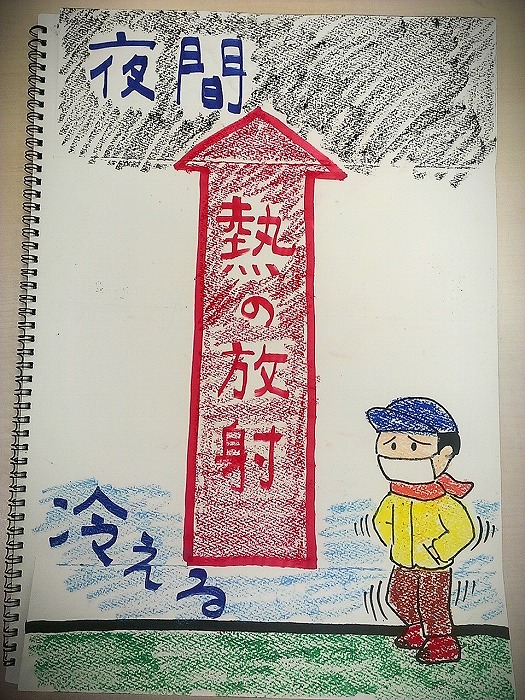 夜間
熱の放射
冷える